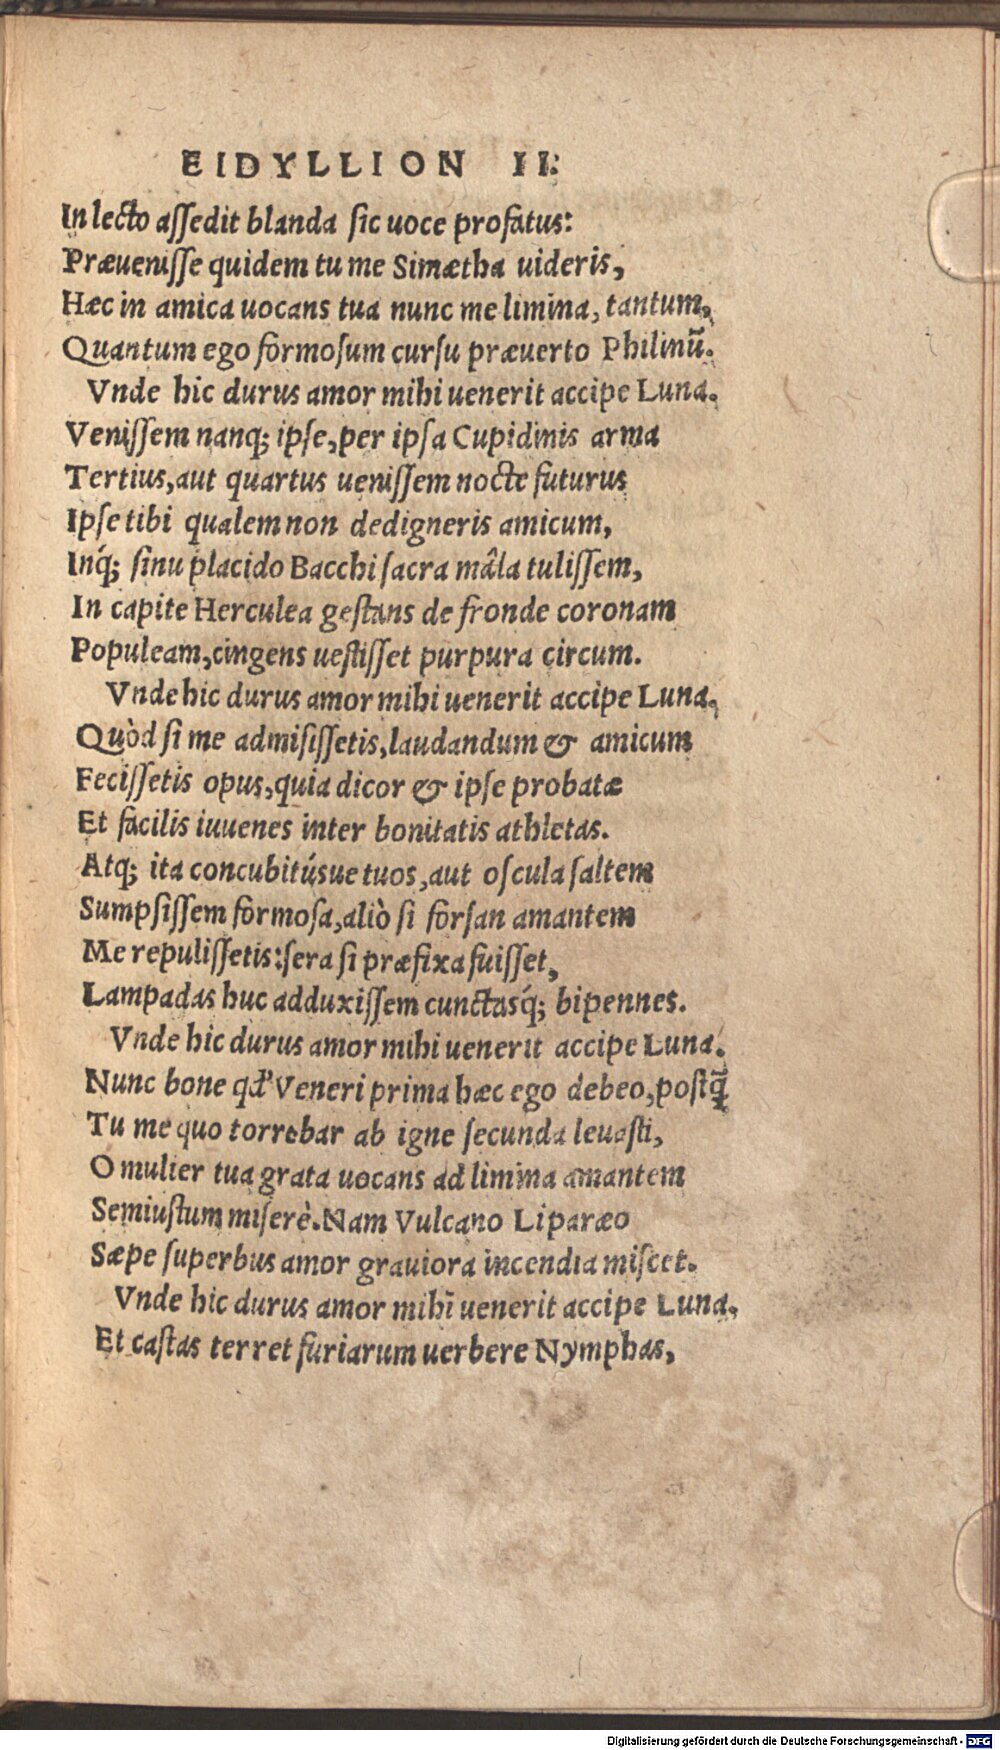 EIDYLLION II.
In lecto assedit blanda sic uoce profatus:
Præuenisse quidem tu me Simætha uideris,
Hæc in amica uocans tua nunc me limina, tantum,
Quantum ego formosum cursu præuerto Philinū.
Vnde hic durus amor mihi uenerit accipe Luna.
Venissem nanq; ipse, per ipsa Cupidinis arma
Tertius, aut quartus uenissem nocte futurus
Ipse tibi qualem non dedigneris amicum,
Inq́; sinu placido Bacchi sacra mâla tulissem,
In capite Herculea gestans de fronde coronam
Populeam, cingens uestisset purpura circum.
Vnde hic durus amor mihi uenerit accipe Luna.
Quòd si me admisissetis, laudandum & amicum
Fecissetis opus, quia dicor & ipse probatæ
Et facilis iuuenes inter bonitatis athletas.
Atq; ita concubitúsue tuos, aut oscula saltem
Sumpsissem formosa, aliò si forsan amantem
Me repulissetis: sera si præfixa fuisset,
Lampadas huc adduxissem cunctasq́; bipennes.
Vnde hic durus amor mihi uenerit accipe Luna.
Nunc bone qđ Veneri prima hæc ego debeo, postq̃
Tu me quo torrebar ab igne secunda leuasti,
O mulier tua grata uocans ad limina amantem
Semiustum miserè. Nam Vulcano Liparæo
Sæpe superbus amor grauiora incendia miscet.
Vnde hic durus amor mihi uenerit accipe Luna.
Et castas terret furiarum uerbere Nymphas,
Digitalisierung gefördert durch die Deutsche Forschungsgemeinschaft - DFG